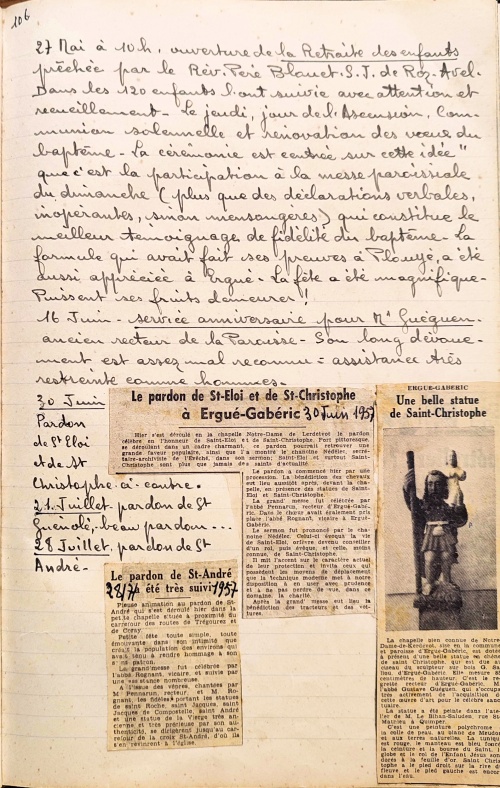 106
27 Mai à 10h, ouverture de la Retraite des enfants
prêchée par le Rév. Père Blouet. S.J. de Roz-Avel.
Dans les 120 enfants l'ont suivie avec attention et
recueillement - Le jeudi, jour de l'Ascension, Com-
munion solennelle et rénovation des vœux du
baptême - La cérémonie est centrée sur cette idée "
que c'est la participation à la messe paroissiale
du dimanche (plus que des déclarations verbales,
inopérantes, sinon mensongères) qui constitue le
meilleur témoignage de fidélité du baptême - La
formule qui avait fait ses preuves à Plouyé, a été
aussi appréciée à Ergué - La fête a été magnifique -
Puissent ses fruits demeurer !
16 Juin - service anniversaire pour Mr Guéguen -
ancien recteur de la Paroisse - Son long dévoue-
ment est assez mal reconnu = assistance très
restreinte comme hommes -
30 Juin
Pardon
de St Eloi
et de St
Christophe ci-contre.
21. Juillet pardon de St
Guénolé, beau pardon ...
28 Juillet. pardon de St
André -
Le pardon de St-Eloi et de St-Christophe
à Ergué-Gabéric 30 Juin 1957
Hier s'est déroulé en la chapelle Notre-Dame de Kerdévot le pardon
célébré en l'honneur de Saint-Eloi et de Saint-Christophe. Fort pittoresque,
se déroulant dans un cadre charmant, ce pardon pourrait retrouver une
grande faveur populaire, ainsi que l'a montré le chanoine Nédélec, secré-
taire-archiviste de l'Evêché, dans son sermon; Saint-Eloi et surtout Saint-
Christophe sont plus que jamais des saints d'actualité.
Le pardon a commencé hier par une
procession. La bénédiction des chevaux
eut lieu aussitôt après, devant la cha-
pelle, en présence des statues de Saint-
Eloi et Saint-Christophe.
La grand' messe fut célébrée par
l'abbé Pennarun, recteur d'Ergué-Gabé-
ric. Dans le chœur avait également pris
place l'abbé Rognant, vicaire à Ergué-
Gabéric.
Le sermon fut prononcé par le cha-
noine Nédélec. Celui-ci évoqua la vie
de Saint-Eloi, orfèvre devenu conseiller
d'un roi, puis évêque, et celle, moins
connue, de Saint-Christophe.
Il mit l'accent sur le caractère actuel
de leur protection et invita ceux qui
possèdent les moyens de déplacement
que la technique moderne met à notre
disposition à en user avec prudence
et à ne pas perdre de vue, dans ce
domaine, la charité.
Après la grand' messe eut lieu la
bénédiction des tracteurs et des voi-
tures.
Le pardon de St-André
28/7 a été très suivi 1957
Pieuse animation au pardon de St-
André qui s'est déroulé hier dans la
petite chapelle située à proximité du
carrefour des routes de Trégourez et
de Coray.
Petite fête toute simple, toute
émouvante dans son intimité que
créait la population des environs qui
avait tenu à rendre hommage à son
saint patron.
La grand'messe fut célébrée par
l'abbé Rognant, vicaire, et suivie par
une assistance nombreuse.
A l'issue des vêpres, chantées par
M. Pennarun, recteur, et M. Ro-
gnant, les fidèles portant les statues
de saint Roche, saint Jacques, saint
Jacques de Compostelle, saint André
et une statue de la Vierge très an-
cienne et très précieuse par son au-
thenticité, se dirigèrent jusqu'au car-
refour de la croix St-André, d'où ils
s'en revinrent à l'église.
ERGUE-GABERIC
Une belle statue
de Saint-Christophe
La chapelle bien connue de Notre-
Dame-de-Kerdévot, sise en la commune
et paroisse d'Ergué-Gabéric, est dotée
à présent d'une belle statue en chêne
de saint Christophe, qui est due au
ciseau du sculpteur sur bois
lieu, d'Ergué-Gabéric. Elle mesure
centimètres de hauteur. C'est le re-
gretté recteur d'Ergué-Gabéric,
l'abbé Gustave Guéguen, qui s'occupa
très activement de l'acquisition de
cette œuvre d'art pour le célèbre sanc-
tuaire.
La statue a été peinte dans l'ate-
lier de M. Le Bihan-Saluden, rue St-
Mathieu à Quimper.
C'est une peinture polychrome
à la colle de peau, au blanc de Meudon
et aux terres naturelles. La tunique
est rouge, le manteau est bleu foncé,
la ceinture et la bourse du Saint, le
globe et le roi de l'Enfant Jésus sont
dorés à la feuille d'or. Saint Chris-
tophe a le pied droit sur la rive du
fleuve et le pied gauche est encore
dans l'eau.